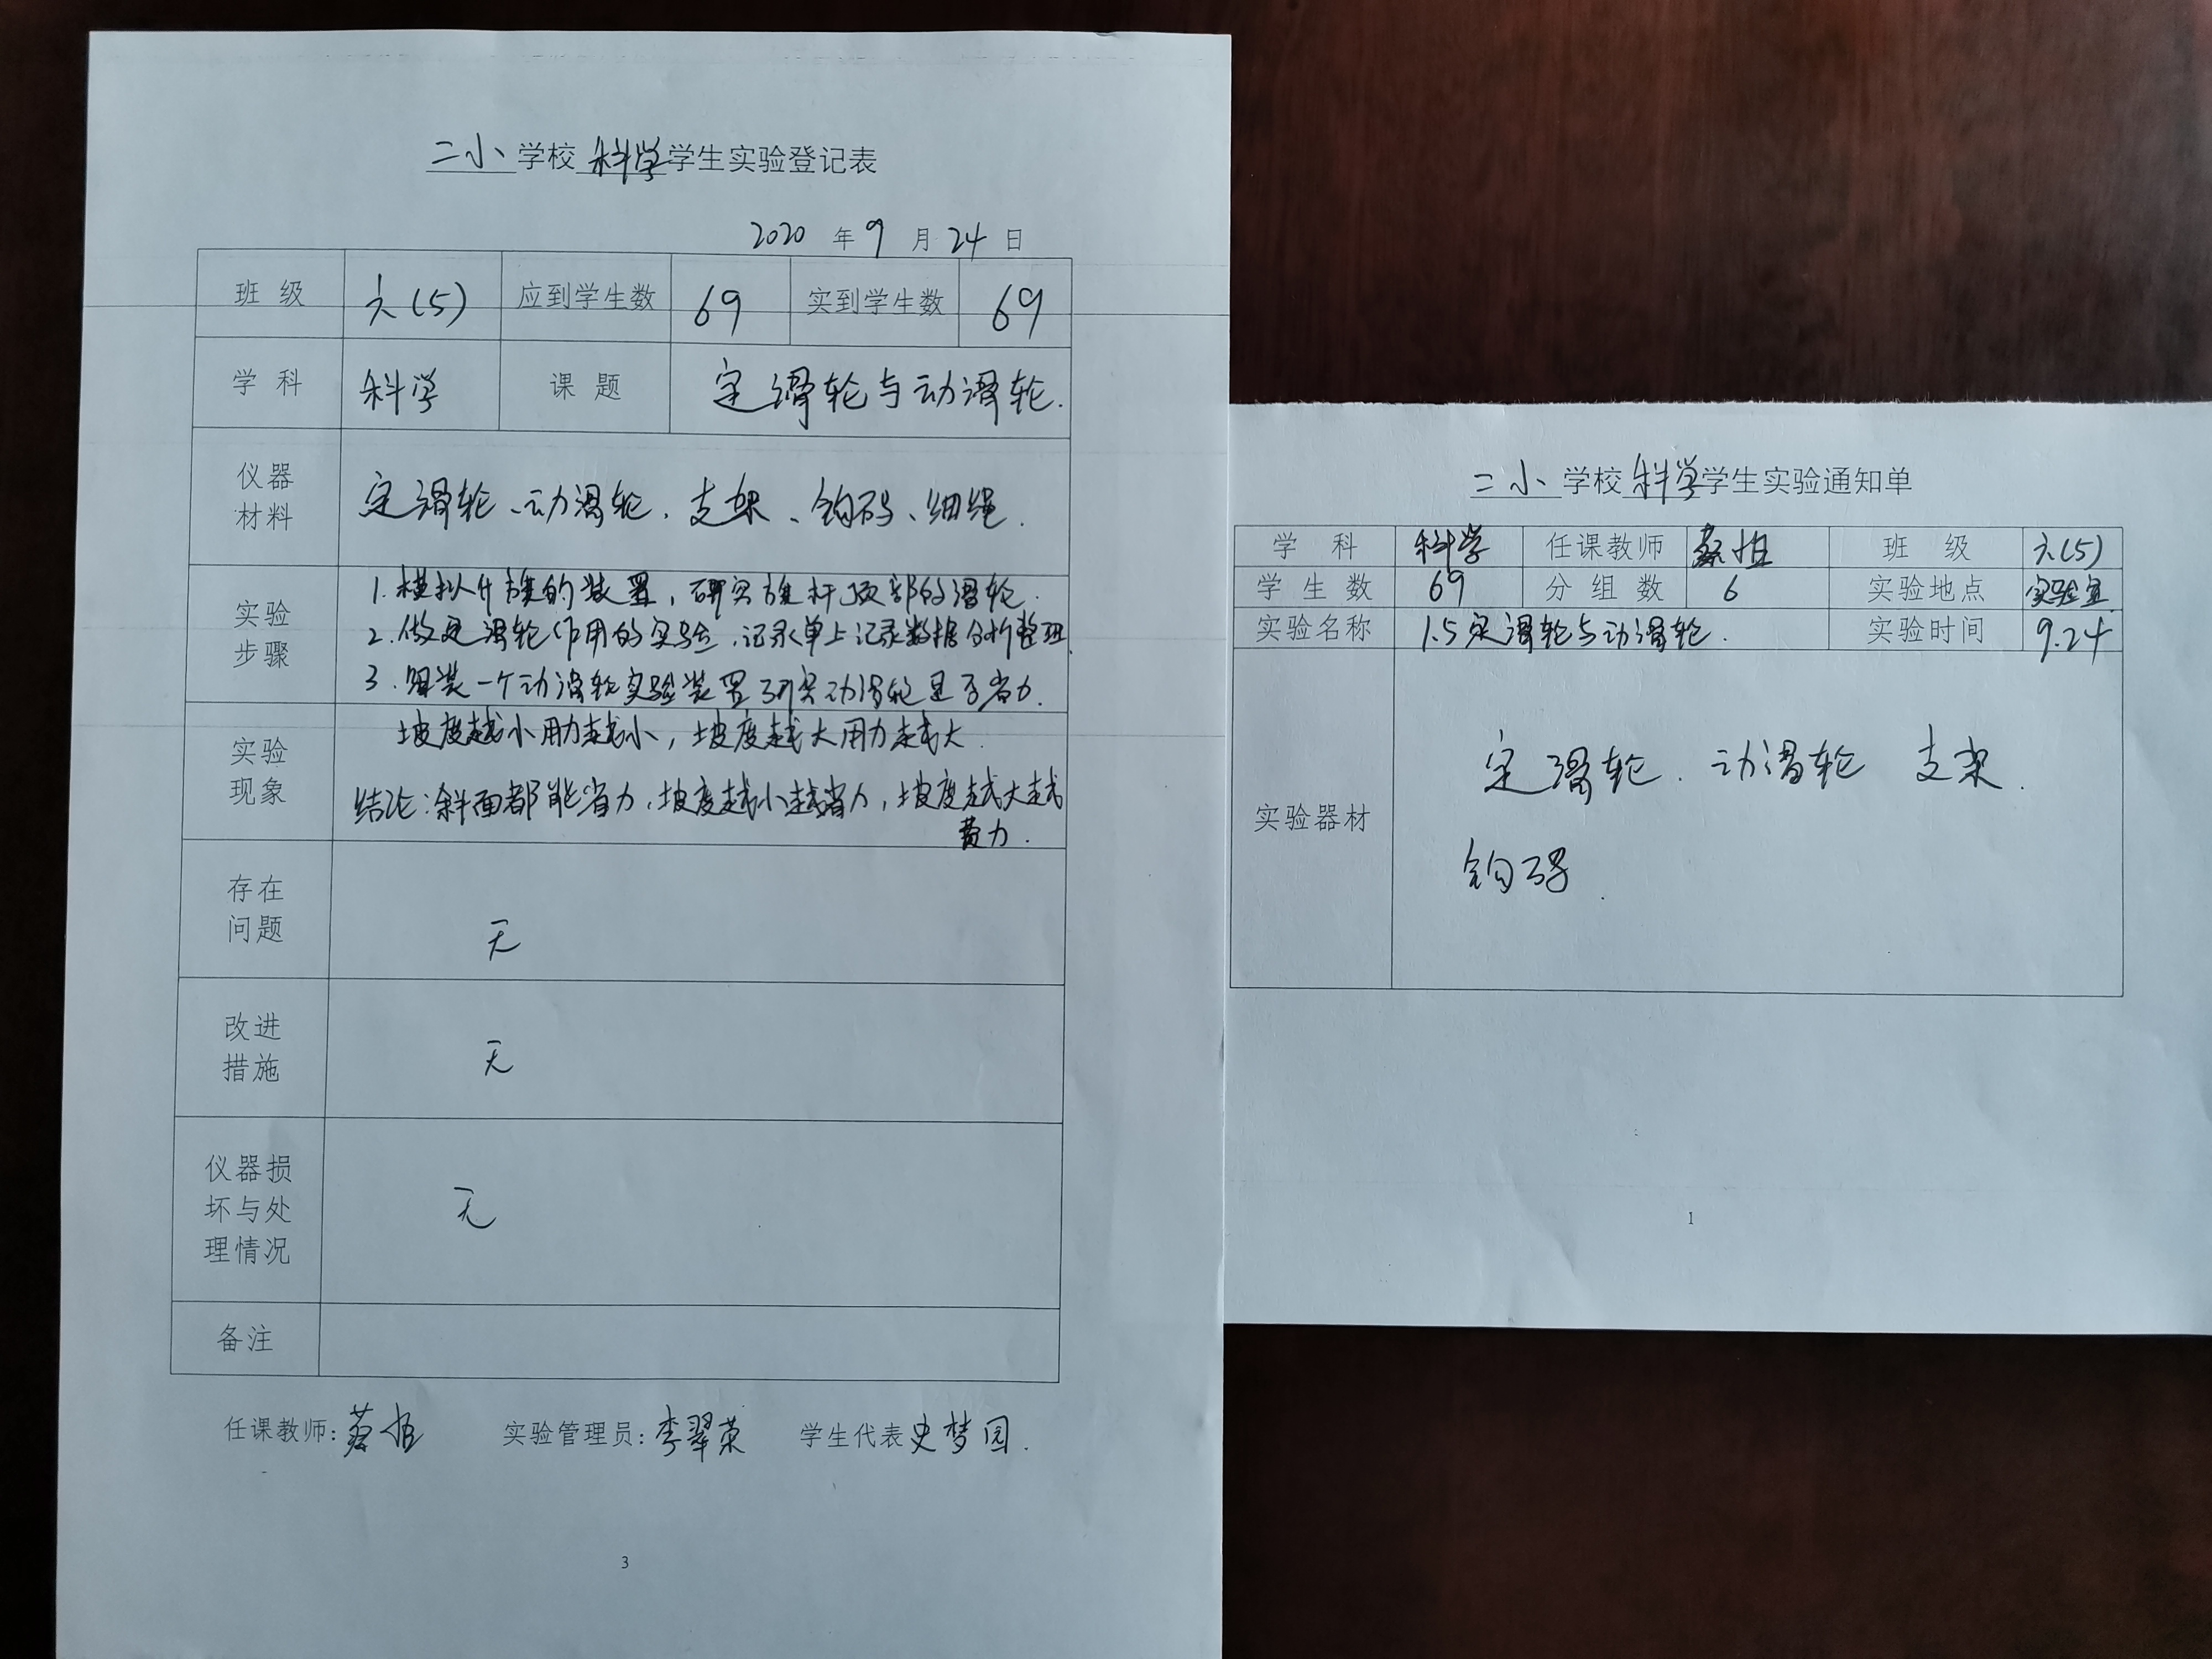 二小学校科学学生实验登记表
2020 年 9 月 24 日
班 级 六(5) 应到学生数 69 实到学生数 69
学 科 科学 课 题 定滑轮与动滑轮.
仪器
材料
定滑轮、动滑轮、支架、钩码、细绳.
实验
步骤
1.模拟升旗的装置,研究旗杆顶部的滑轮.
2.做定滑轮作用的实验,记录单上记录数据分析整理.
3.组装一个动滑轮实验装置研究动滑轮是否省力.
实验
现象
坡度越小用力越小,坡度越大用力越大.
结论:斜面都能省力,坡度越小越省力,坡度越大越
费力.
存在
问题
无
改进
措施
无
仪器损
坏与处
理情况
无
备注
任课教师:蔡 实验管理员:李翠荣 学生代表史梦园.
3
二小学校科学学生实验通知单
学 科 科学 任课教师 蔡 班 级 六(5)
学 生 数 69 分 组 数 6 实验地点 实验室
实验名称 1.5定滑轮与动滑轮. 实验时间 9.24
实验器材
定滑轮、动滑轮 支架.
钩码.
1